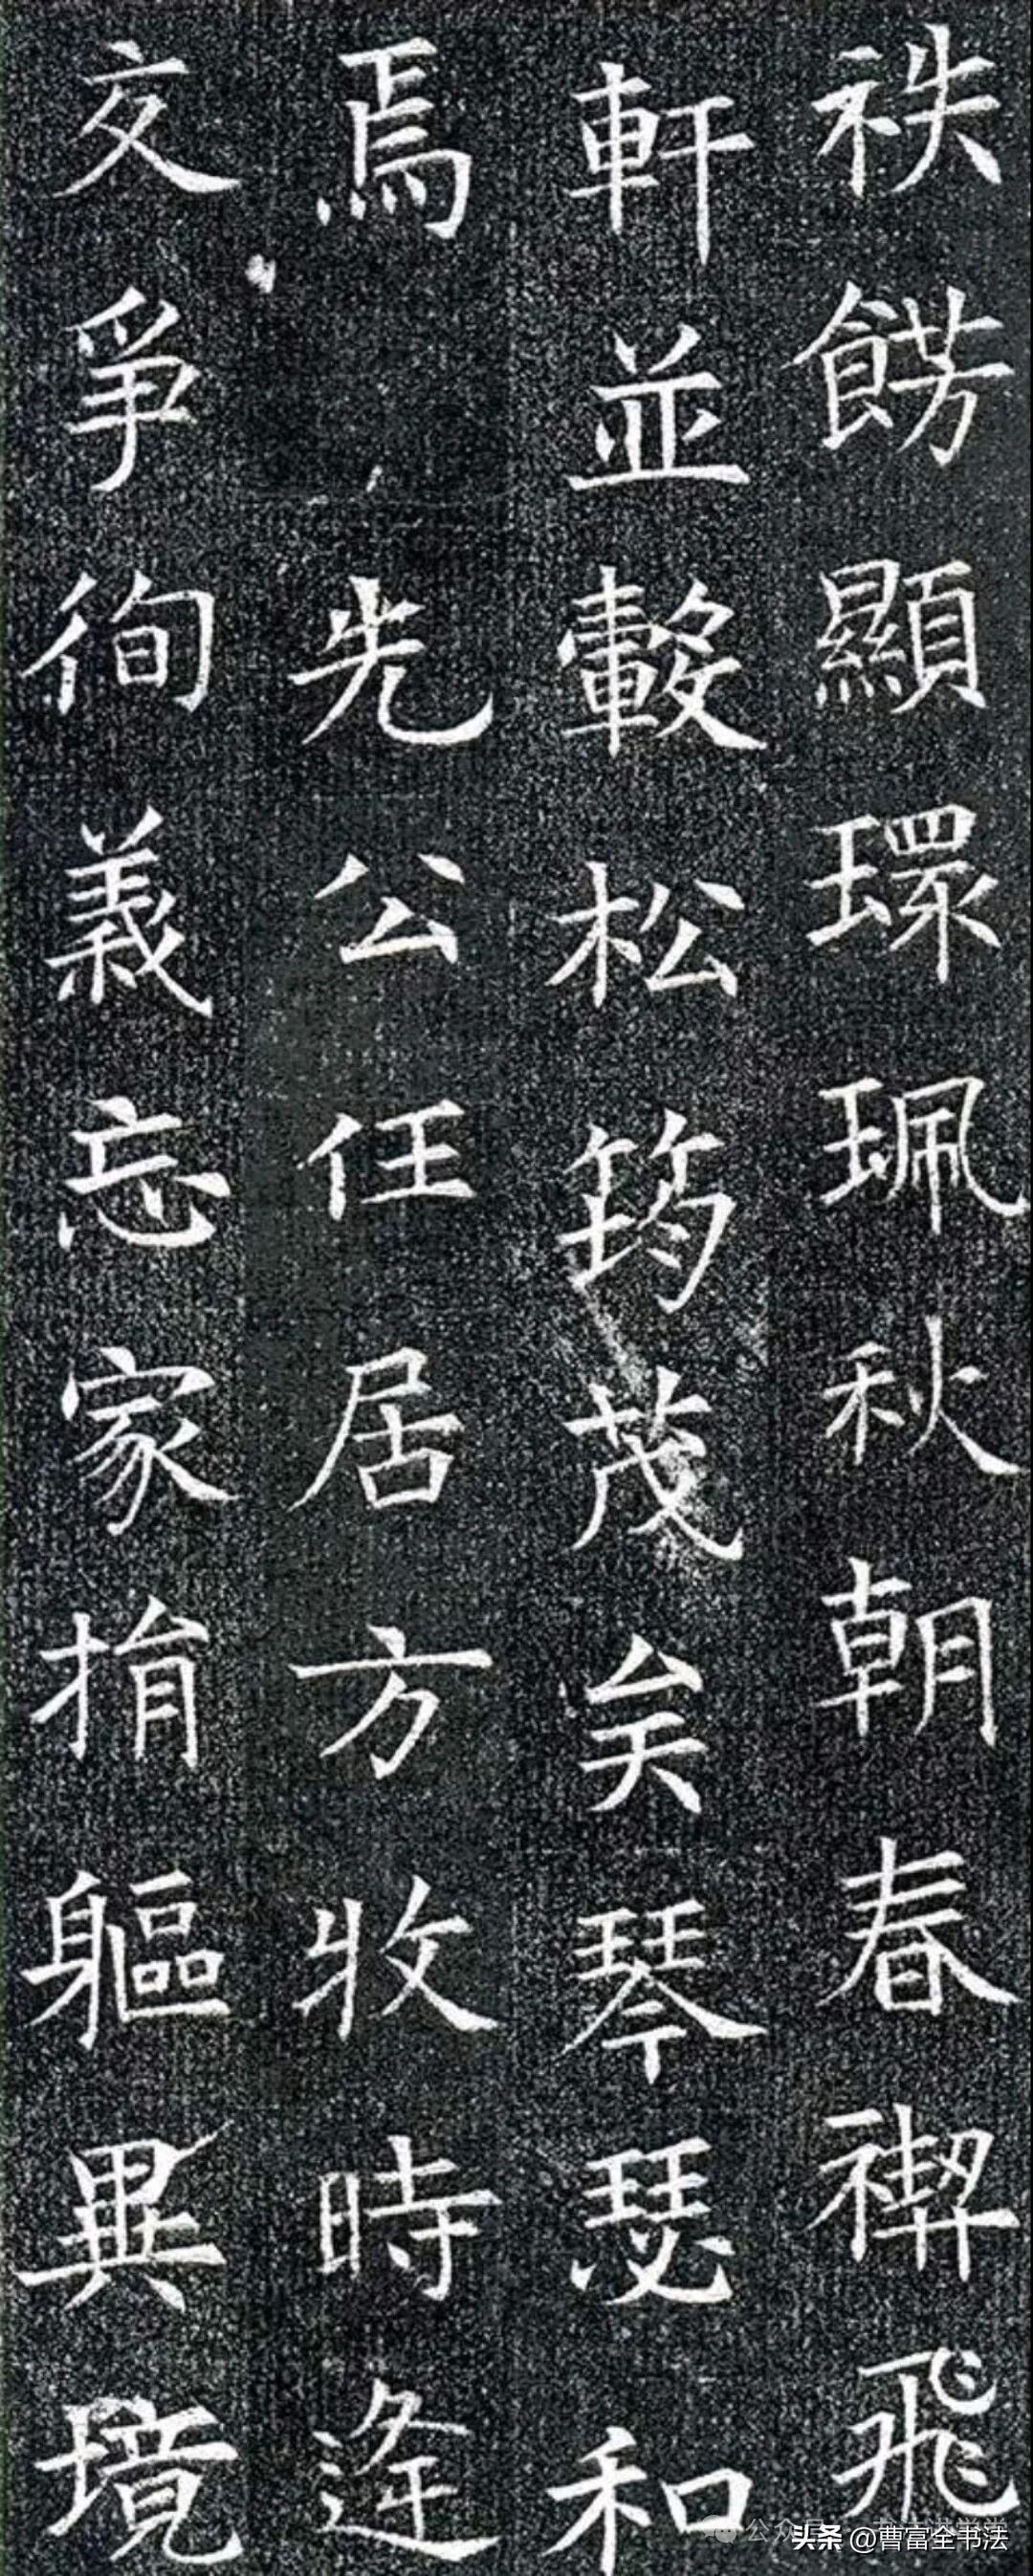 祑餝顯環珮秋朝春禊飛
軒並轂松筠茂矣琴瑟和
焉 先公任居方牧時逢
交爭徇義忘家捐軀異境
头条 @曹富全书法